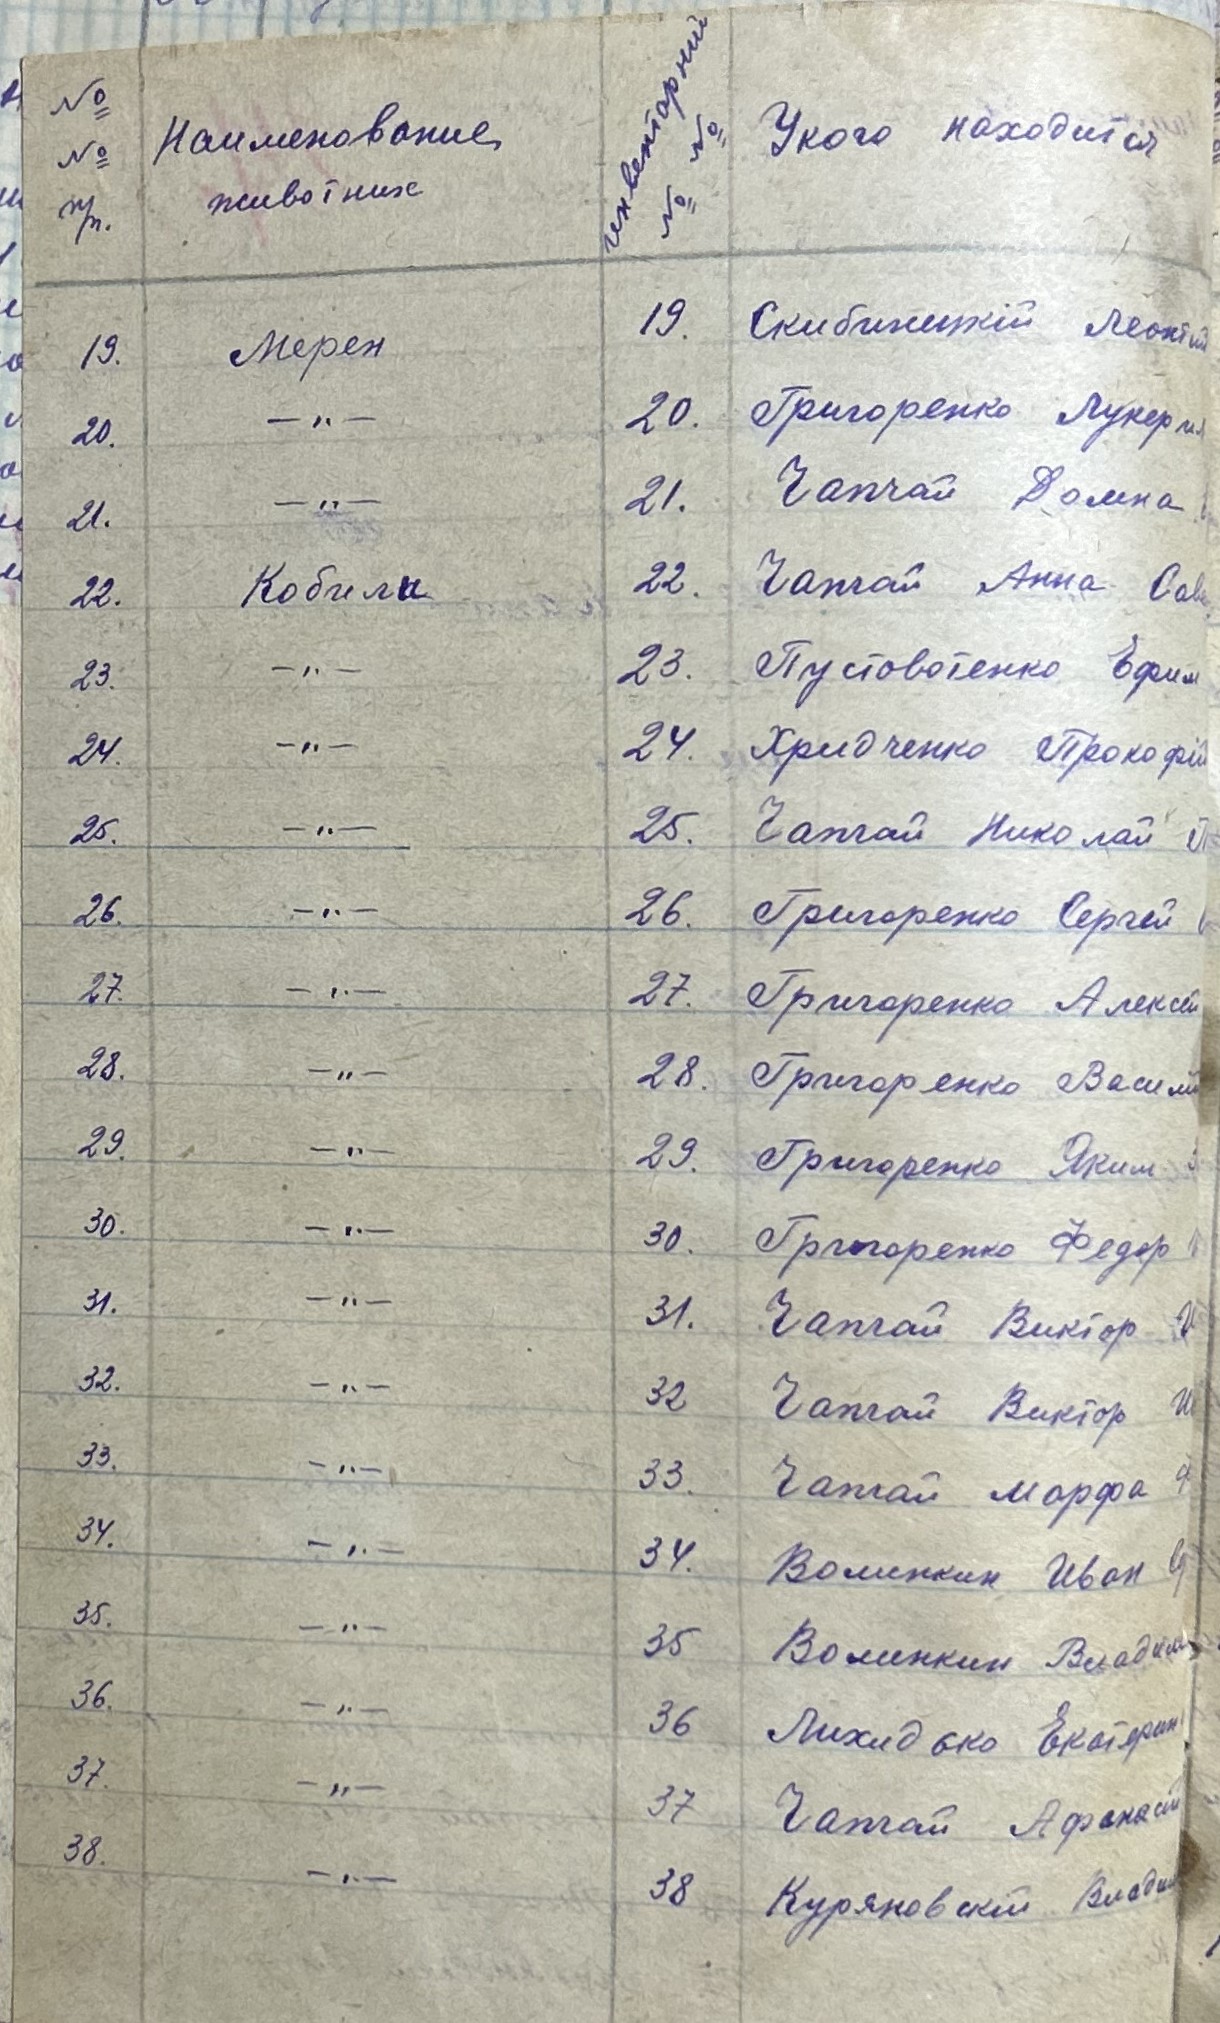 № № п/п. Наименование животних инвентарний № № У кого находится
19. Мерен 19. Скибицкій Леонтій
20. —"— 20. Григоренко Лукерия
21. —"— 21. Чапчай Домна
22. Кобили 22. Чапчай Анна Сав
23. —"— 23. Пустовотенко Ефим
24. —"— 24. Хридченко Прокофій
25. —"— 25. Чапчай Николай П
26. —"— 26. Григоренко Сергей
27. —"— 27. Григоренко Алексей
28. —"— 28. Григоренко Василий
29. —"— 29. Григоренко Яким
30. —"— 30. Григоренко Федор
31. —"— 31. Чапчай Виктор И
32. —"— 32 Чапчай Виктор И
33. —"— 33. Чапчай Марфа Ф
34. —"— 34. Волинкин Иван
35. —"— 35 Волинкин Владим
36. —"— 36 Лихидько Екатерин
37. —"— 37 Чапчай Афанасий
38. —"— 38 Куряновскій Влади